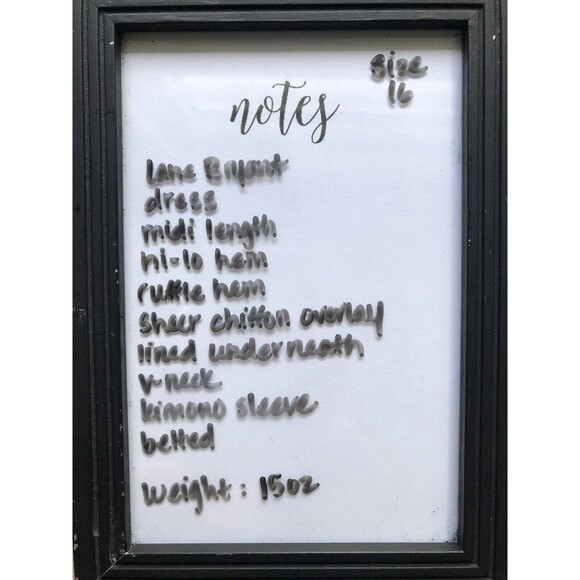 size
16
notes
Lane Bryant
dress
midi length
hi-lo hem
ruffle hem
sheer chiffon overlay
lined underneath
v-neck
kimono sleeve
belted
weight: 15oz